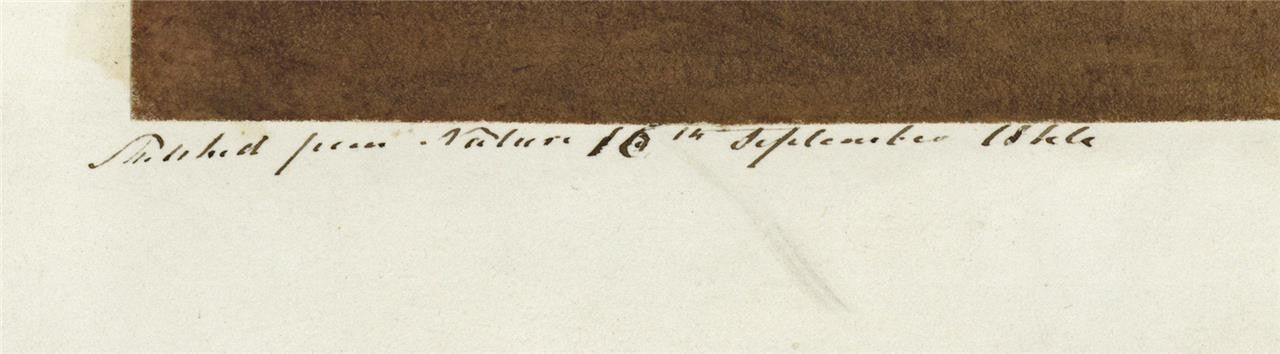 Sketched from Nature 16th September 1844